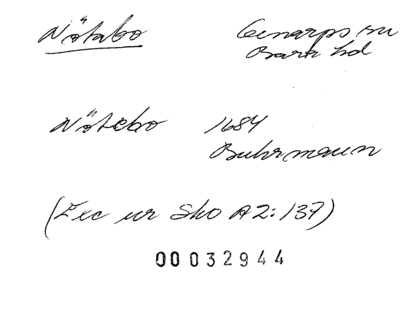 Nötabo Genarps sn
Bara hd
Nötebo 1684
Buhrmann
(Exc ur Sko A2:137)
00032944